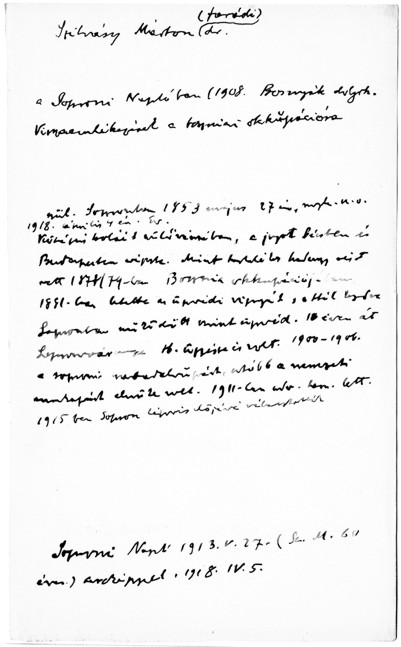 (tarádi)
Szilvásy Márton dr.
a Soproni Naplóban (1908. Bosnyák dolgok.
Visszaemlékezések a boszniai okkupációra
szül. Sopronban 1853 május 27 én, megh. u. o.
1918. április 4 én.
Középiskoláit szülővárosában, a jogot Bécsben és
Budapesten végezte. Mint hadnagy részt
vett 1878/79-ben Bosznia okkupációjában.
1881-ben letette az ügyvédi vizsgát, s attól kezdve
Sopronban működött mint ügyvéd. 10 éven át
Sopronvármegye tb. főügyésze is volt. 1900-1906.
a soproni szabadelvűpárt, utóbb a nemzeti
munkapárt elnöke volt. 1911-ben udv. tan. lett.
1915 ben Sopron képviselőjévé választották
Soproni Napló 1913. V. 27. (Sz. M. 60
éves.) arcképpel. 1918. IV. 5.